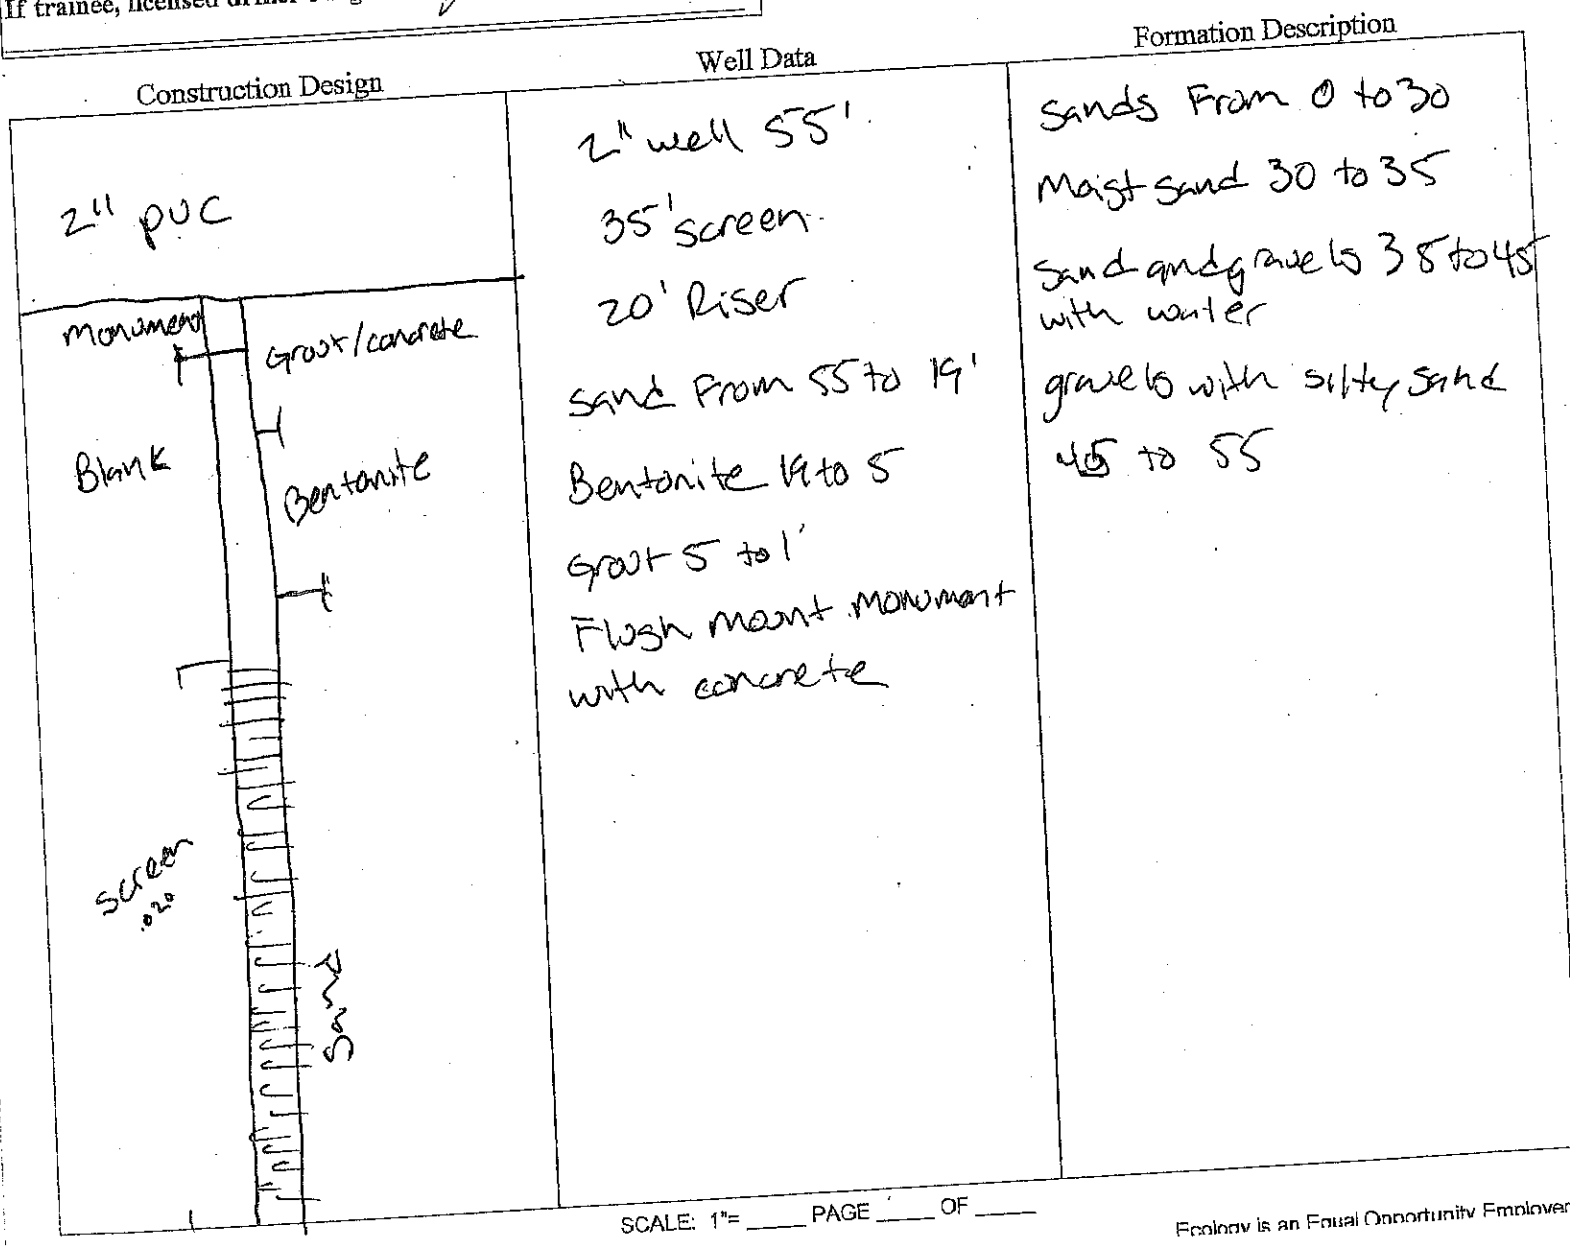 If trainee, licensed
Construction Design
2" PVC
Monument
Grout/concrete
Blank
Bentonite
Screen
.020
Sand
Well Data
2" well 55'
35' screen
20' Riser
Sand From 55 to 19'
Bentonite 19 to 5
Grout 5 to 1'
Flush mount monument
with concrete
Formation Description
Sands From 0 to 30
Moist sand 30 to 35
Sand and gravels 35 to 45
with water
gravels with silty sand
45 to 55
SCALE: 1"= _____ PAGE _____ OF _____
Ecology is an Equal Opportunity Employer